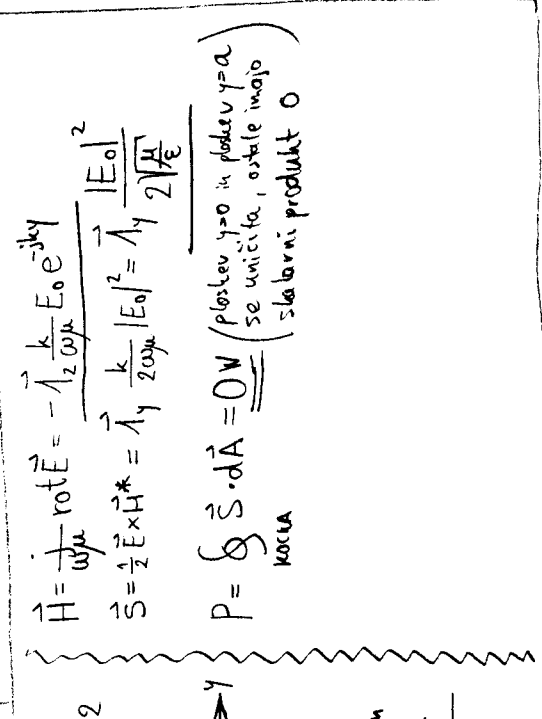 H⃗ = j/ωμ rot E⃗ = - 1⃗z k/ωμ E₀ e^-jky
S⃗ = ½ E⃗ × H⃗* = 1⃗y k/2ωμ |E₀|² = 1⃗y |E₀|²/2√(μ/ε)
P = ∮ S⃗ · dA⃗ = 0W (ploskev y=0 in ploskev y=a
se uničita, ostale imajo
skalarni produkt 0)
KOCKA
2
y